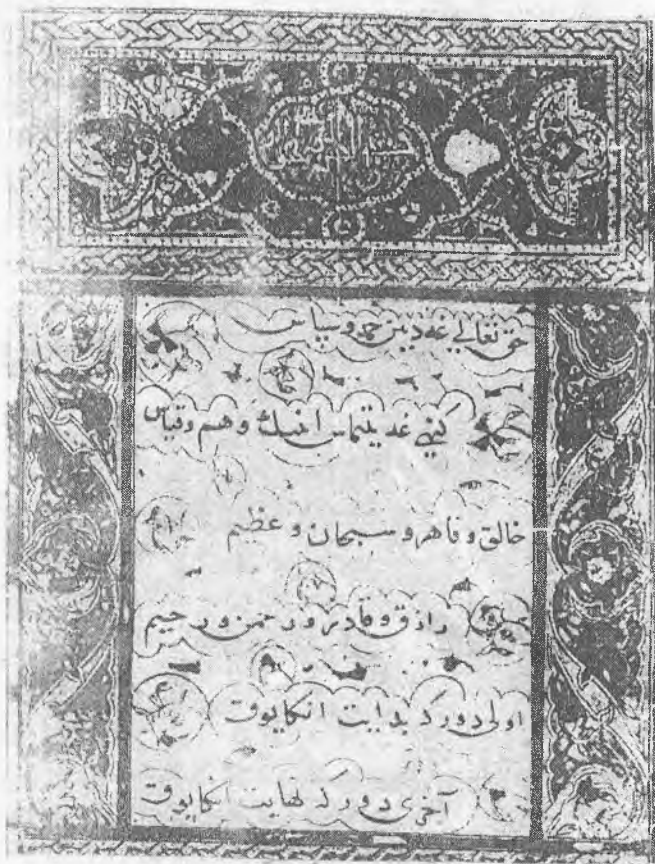 بسم الله الرحمن الرحیم
حق تعالی غه دیین حمد و سپاس
کنهی غه یتماس انینک وهم و قیاس
خالق و قاهر و سبحان و عظیم
رازق و قادر و رحمن و رحیم
اولی دورکه بدایت انکا یوق
آخری دورکه نهایت انکا یوق